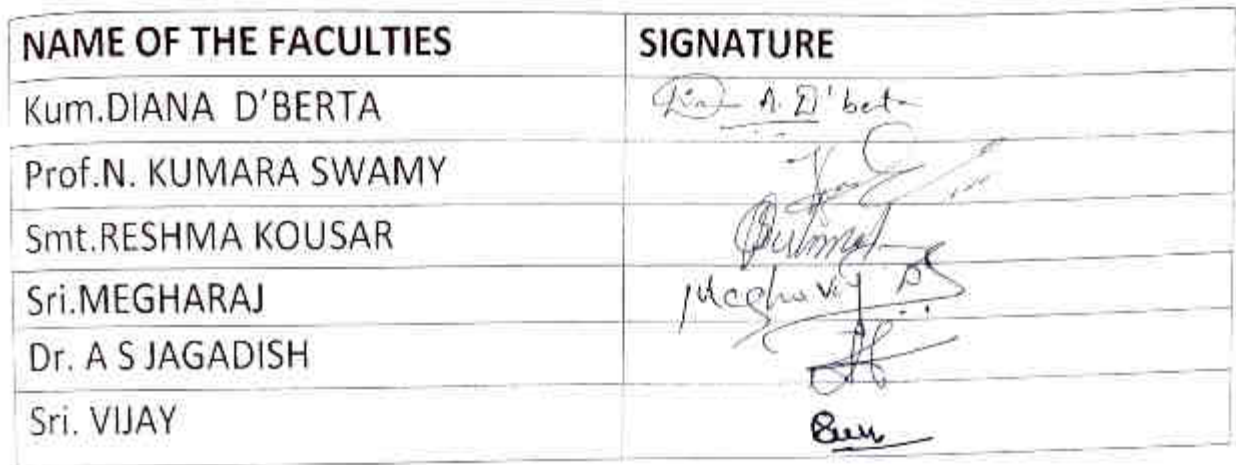 NAME OF THE FACULTIES SIGNATURE
Kum.DIANA D'BERTA A. D'berta
Prof.N. KUMARA SWAMY
Smt.RESHMA KOUSAR
Sri.MEGHARAJ Megharaj DS
Dr. A S JAGADISH
Sri. VIJAY